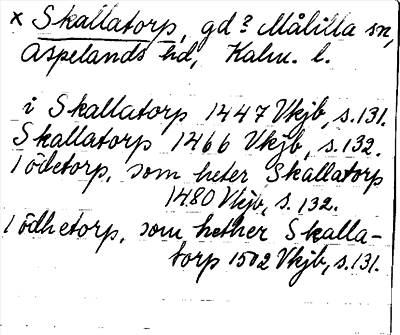 x Skallatorp, gd? Målilla sn,
Aspelands hd, Kalm. l.
i Skallatorp 1447 Vkjb, s.131.
Skallatorp 1466 Vkjb, s.132.
1 ödetorp, som heter Skallatorp
1480 Vkjb, s. 132.
1 ödhetorp, som hether Skalla-
torp 1502 Vkjb, s.131.